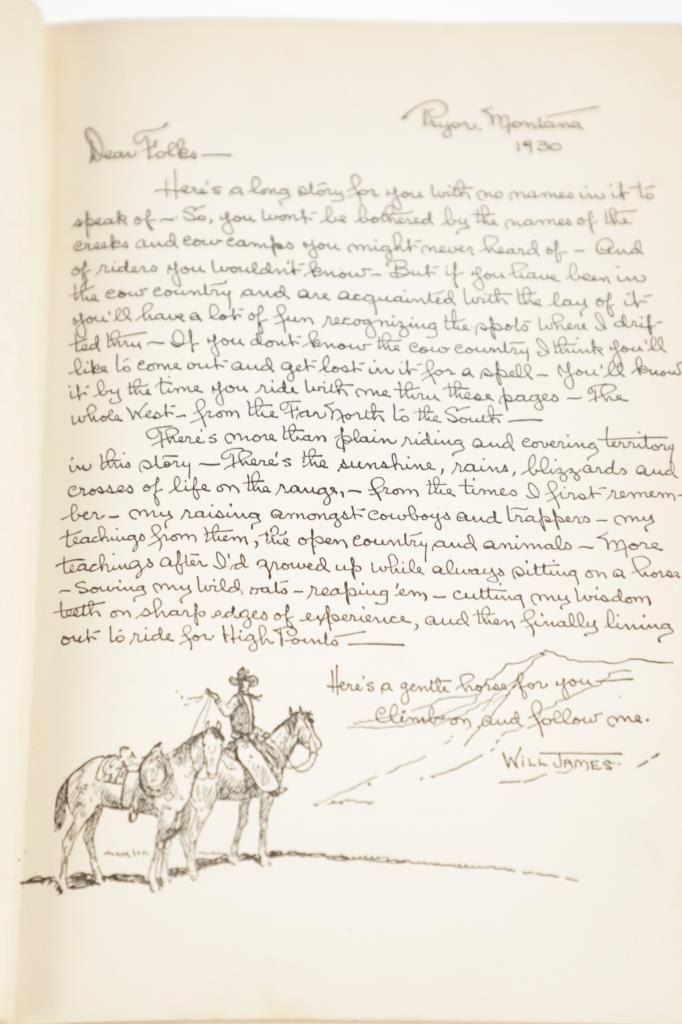 Pryor, Montana
1930
Dear Folks—
Here's a long story for you with no names in it to
speak of— So, you wont be bothered by the names of the
creeks and cow camps you might never heard of— And
of riders you wouldn't know— But if you have been in
the cow country and are acquainted with the lay of it
you'll have a lot of fun recognizing the spots where I drif-
ted thru— If you dont know the cow country I think you'll
like to come out and get lost in it for a spell— You'll know
it by the time you ride with me thru these pages— The
whole West— from the Far North to the South—
There's more than plain riding and covering territory
in this story— There's the sunshine, rains, blizzards and
crosses of life on the range,— from the times I first remem-
ber— my raising amongst cowboys and trappers— my
teachings from them, the open country and animals— More
teachings after I'd growed up while always sitting on a horse
— Sowing my wild oats— reaping 'em— cutting my wisdom
teeth on sharp edges of experience, and then finally lining
out to ride for High Points—
Here's a gentle horse for you—
Climb on and follow me.
WILL JAMES